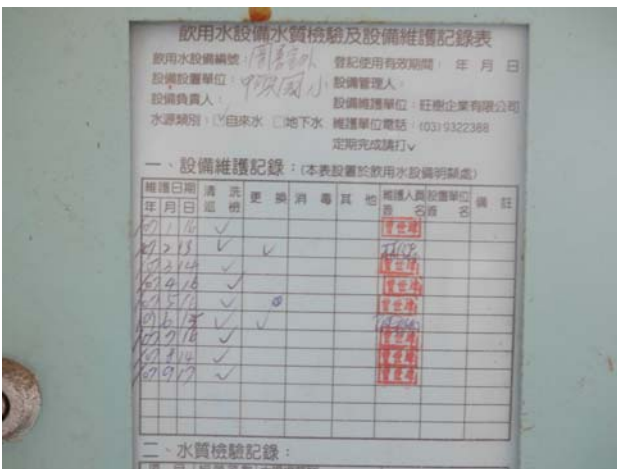 飲用水設備水質檢驗及設備維護記錄表
飲用水設備編號： 登記使用有效期間： 年 月 日
設備設置單位： 國小 設備管理人：
設備負責人： 設備維護單位：旺樹企業有限公司
水源類別：☑自來水 □地下水 維護單位電話：(03)9322368
定期完成請打✓
一、設備維護記錄：(本表設置於飲用水設備明顯處)
維護日期 清洗巡檢 更換 消毒 其他 維護人員簽名 設置單位簽名 備註
年 月 日
107 1 16 ✓
107 2 13 ✓ ✓
107 3 14 ✓
107 4 16 ✓
107 5 16 ✓
107 6 15 ✓ ✓
107 7 16 ✓
107 8 14 ✓
107 9 17 ✓
二、水質檢驗記錄：